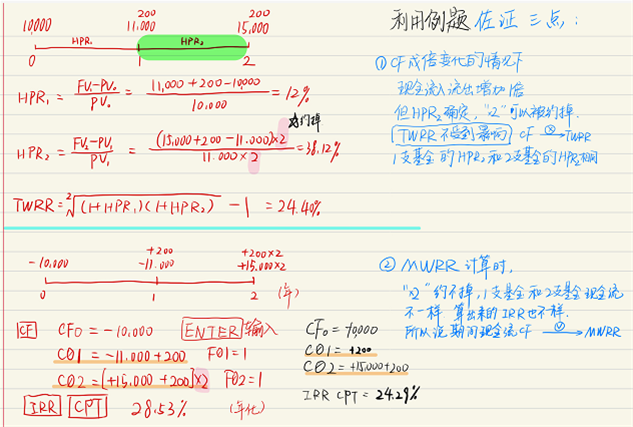 利用例题 佐证 三点:
10000
200
11.000
200
15,000
HPR₁
HPR₂
0 1 2
HPR₁ = FV₁-PV₀ / PV₀ = 11,000+200-10,000 / 10,000 = 12%
约掉
HPR₂ = FV₂-PV₁ / PV₁ = (15,000+200-11.000)×2 / 11.000×2 = 38.12%
TWRR = ²√(1+HPR₁)(1+HPR₂) - 1 = 24.40%
① CF成倍变化的情况下
现金流入流出增加1倍
但HPR₂确定, "2"可以被约掉.
TWRR不受到影响 CF ⊗→ TWRR
1支基金的HPR₂和2支基金的HPR₂相同
-10,000
+200
-11.000
+200×2
+15.000×2
0 1 2 (年)
CF CF0 = -10,000 ENTER 输入
C01 = -11.000+200 F01=1
C02 = [+15,000+200]×2 F02=1
IRR CPT 28.53% (年化)
CF0 = -10,000
C01 = +200
C02 = +15,000+200
IRR CPT = 24.29%
② MWRR 计算时,
"2"约不掉, 1支基金和2支基金现金流
不一样 算出来的IRR也不样.
所以说期间现金流CF → MWRR